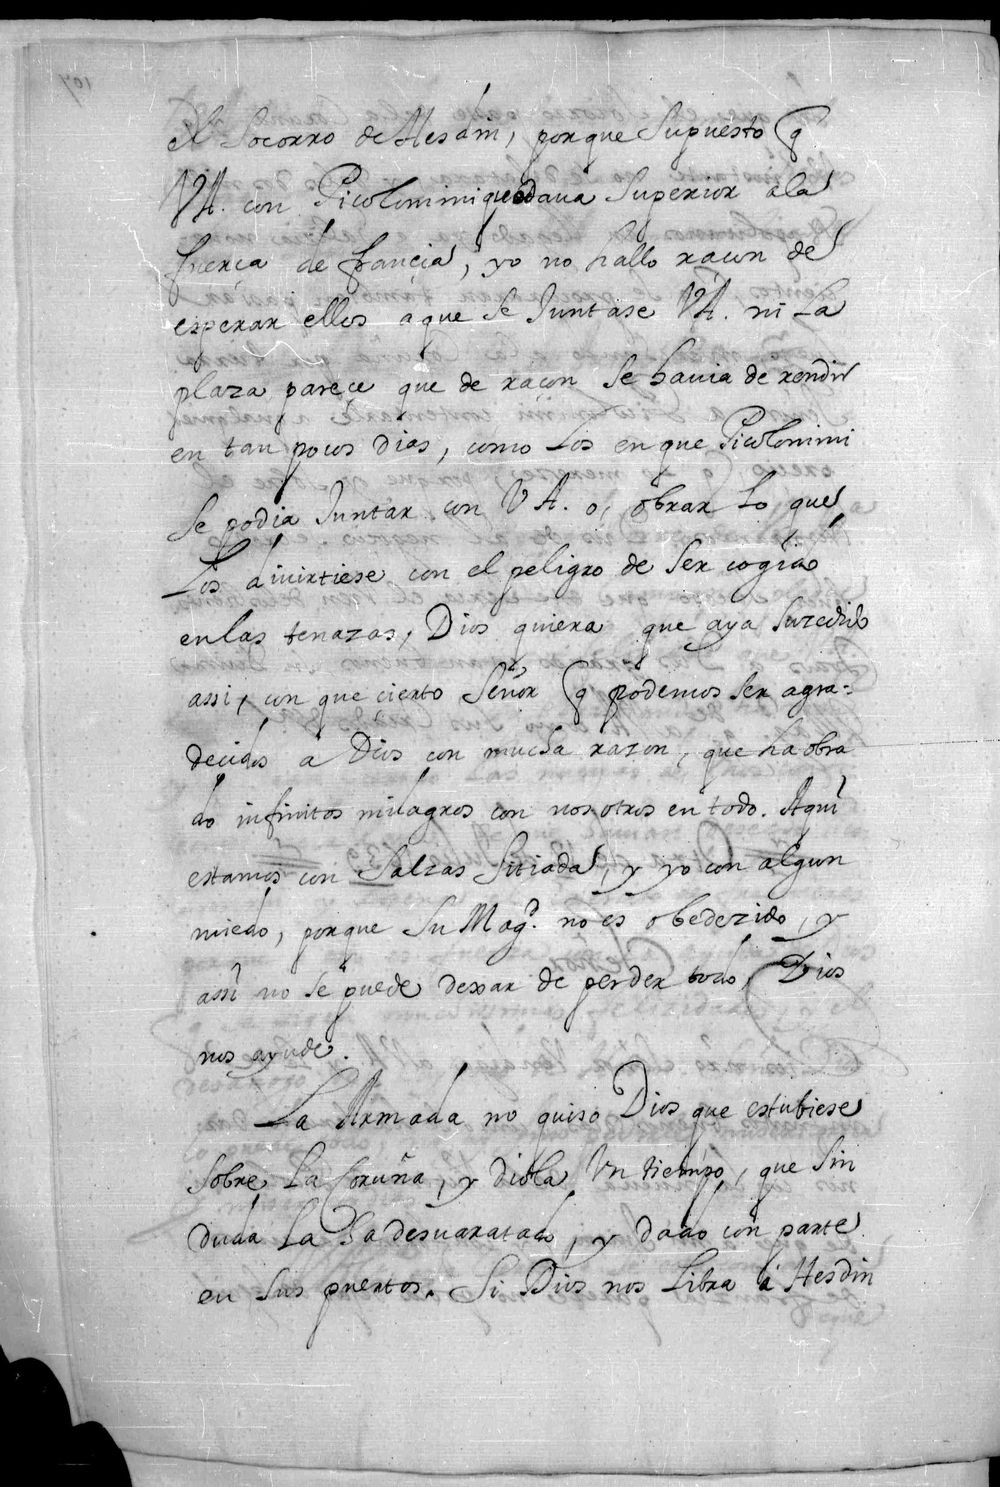 el socorro de Hesdin, porque supuesto q
VA. con Picolomini quedaua superior a la
fuerça de francia, yo no hallo raçon de
esperar ellos a que se Juntase VA. ni La
plaza pareçe que de raçon se hauia de rendir
en tan pocos dias, como Los en que Picolomini
se podia Juntar con VA. o, obrar Lo que
Los diuirtiese con el peligro de ser cogido
en las tenazas, Dios quiera que aya suzedido
assi, con que cierto Señor q podemos ser agra-
decidos a Dios con mucha razon, que ha obra
do infinitos milagros con nosotros en todo. Aqui
estamos con Salzas sitiada, y yo con algun
miedo, porque Su Magd. no es obedezido, y
assi no se puede dexar de perder todo, Dios
nos ayude.
La Armada no quiso Dios que estubiese
sobre La Coruña, y diola Vn tiempo, que sin
duda La ha desuaratado, y dado con parte
en sus puertos. Si Dios nos Libra a Hesdin